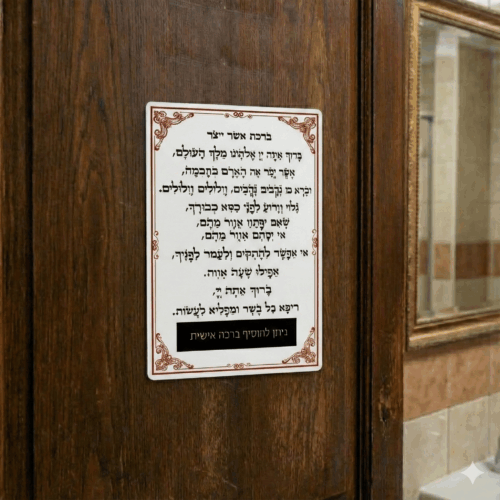 ברכת אשר ייצר
בָּרוּךְ אלהינו מֶלֶךְ הָעוֹלָם,
אֲשֶׁר יצר אֶה הָאָדָם בחבמה,
וּבָרָא בו נְקָבִים נְקָבִים, חֲלוּלִים חֲלוּלִים.
גלוי וְיָדוּעַ לִפְנֵי כִסֵּא כְבוֹדֶךָ,
שאם יפתחו מֵהֶם,
אי יסתם מֵהֶם,
אי אפשר להתקים ולעמד לְפָנֶיךָ,
אֲפִילוּ שָׁעָה
בָּרוּךְ אַתָּה
רופא כָל בָּשָׂר וּמַפְלִיא לַעֲשׂוֹת.
ניתן להוסיף ברכה אישית